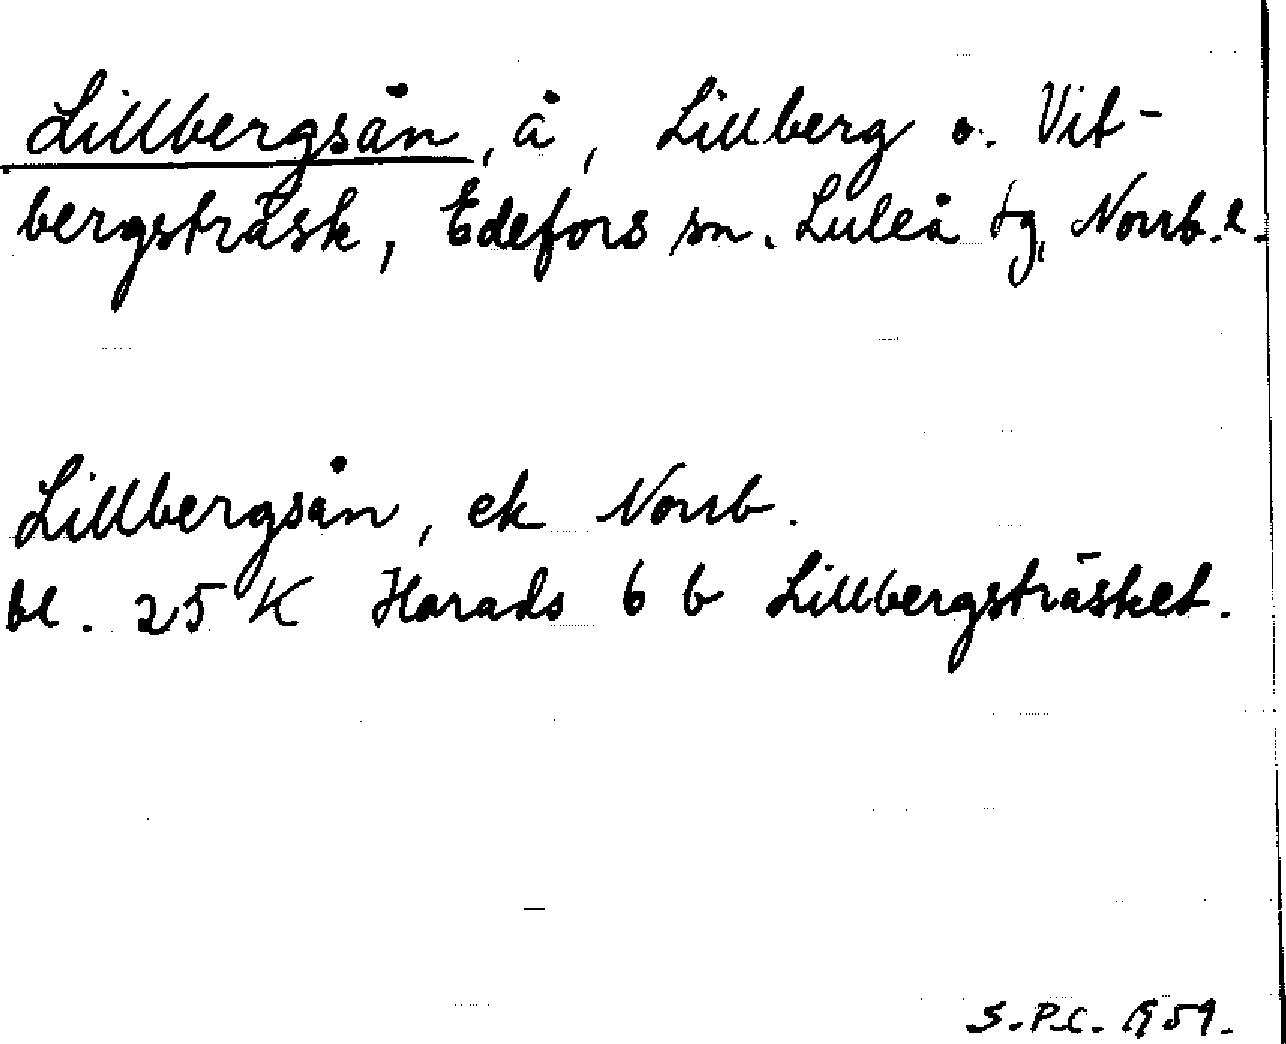 Lillbergsån, å, Lillberg o. Vit-
bergsträsk, Edefors sn. Luleå tg, Norrb.l.
Lillbergsån, ek Norrb.
bl. 25 K Harads 6 b Lillbergsträsket.
S.P.C. 1959.